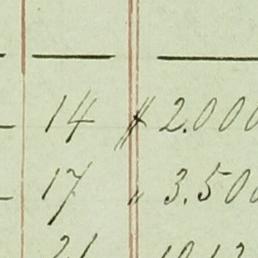 14 $ 2.000
17 " 3.500
21